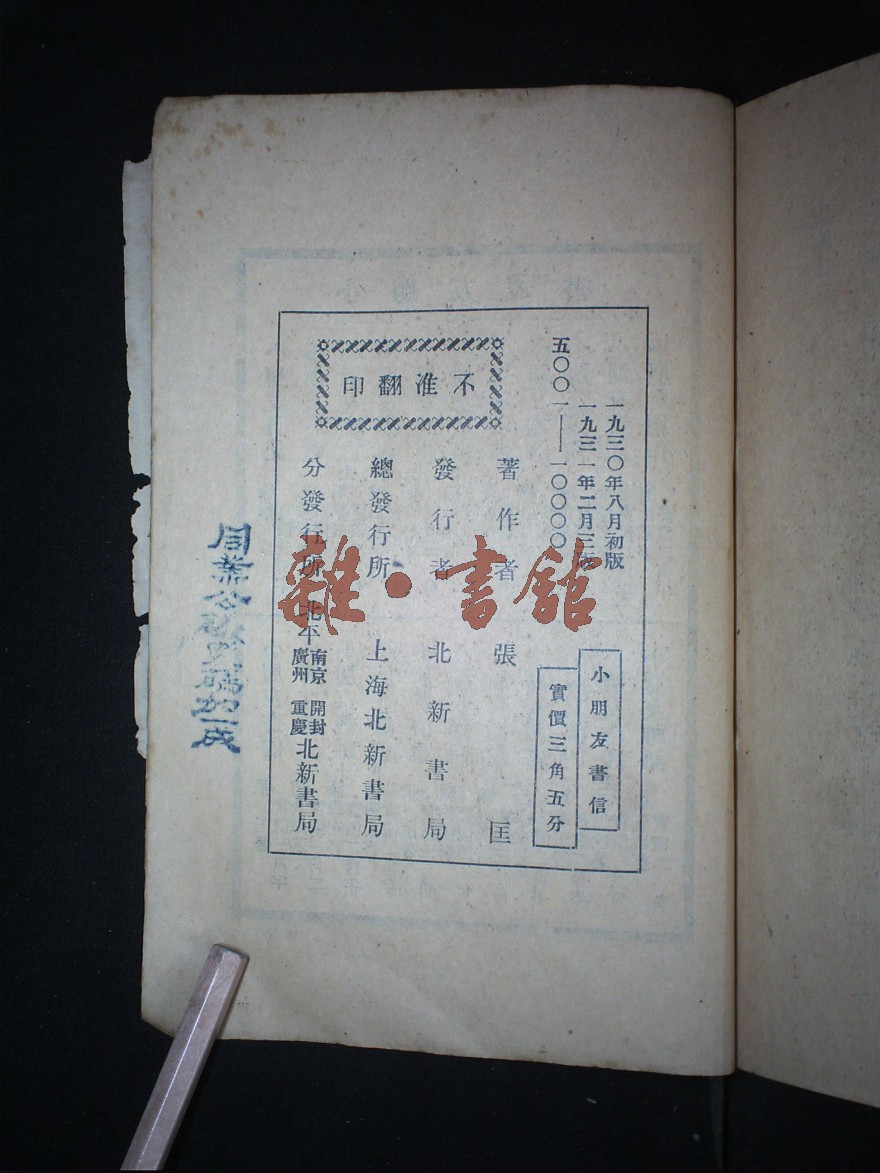 一九三〇年八月初版
一九三一年二月三版
五〇〇一——一〇〇〇〇
小朋友書信
實價三角五分
不准翻印
著作者 張匡
發行者 北新書局
總發行所 上海北新書局
分發行所 北平 南京 廣州 開封 重慶 北新書局
同業公議照碼加一成
雜·書館